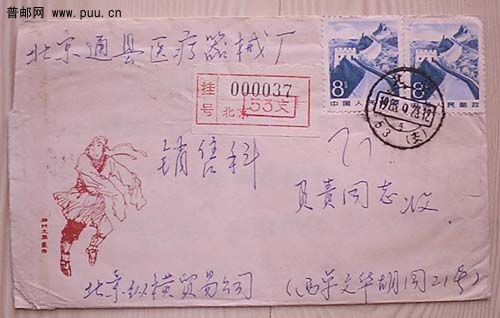 普邮网
www.puu.cn
北京通县医疗器械厂
挂号
000037
北京
53支
8分
8分
中国人民邮政
北京
53(支)
销售科
负责同志收
北京纵横贸易公司 (西单文华胡同21号)